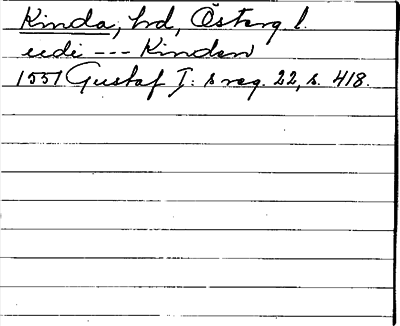 Kinda, hd, Österg l.
udi --- Kinden
1551 Gustaf I: s reg. 22, s. 418.